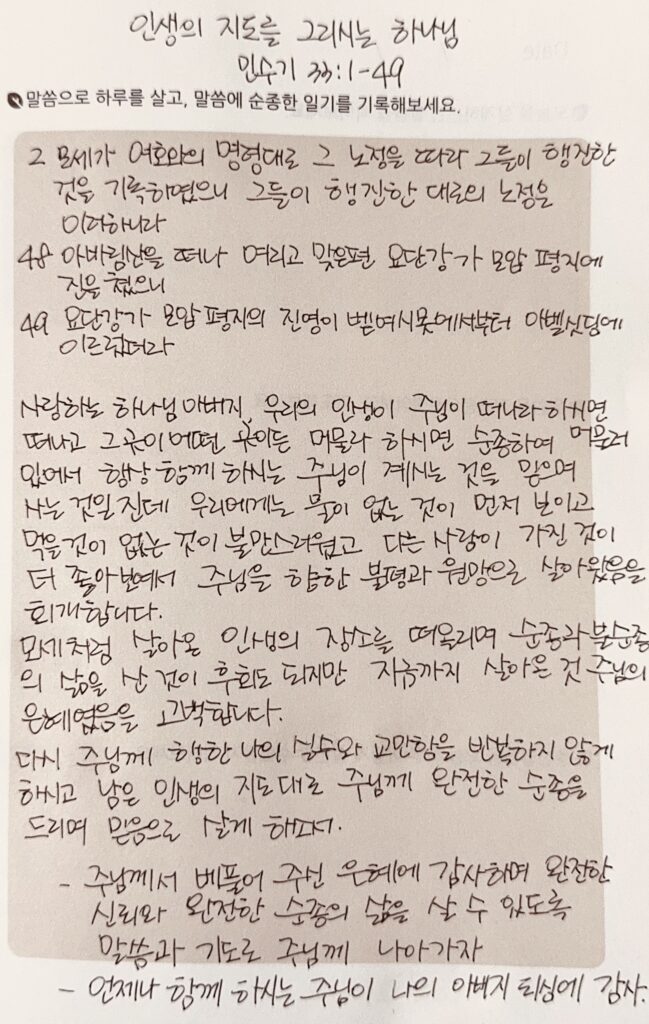 인생의 지도를 그리시는 하나님
민수기 33:1-49
말씀으로 하루를 살고, 말씀에 순종한 일기를 기록해보세요.
2 모세가 여호와의 명령대로 그 노정을 따라 그들이 행진한
것을 기록하였으니 그들이 행진한 대로의 노정은
이러하니라
48 아바림산을 떠나 여리고 맞은편 요단강 가 모압 평지에
진을 쳤으니
49 요단강 가 모압 평지의 진영이 벧여시못에서부터 아벨싯딤에
이르렀더라
사랑하는 하나님 아버지, 우리의 인생이 주님이 떠나라 하시면
떠나고 그 곳이 어떤 곳이든 머물라 하시면 순종하여 머물러
있어서 항상 함께 하시는 주님이 계시는 것을 믿으며
사는 것일 진데 우리에게는 물이 없는 것이 먼저 보이고
먹을 것이 없는 것이 불만스러웠고 다른 사람이 가진 것이
더 좋아보여서 주님을 향한 불평과 원망으로 살아왔음을
회개합니다.
모세처럼 살아온 인생의 장소를 떠올리며 순종과 불순종
의 삶을 산 것이 후회도 되지만 지금까지 살아온 것 주님의
은혜였음을 고백합니다.
다시 주님께 행한 나의 실수와 교만함을 반복하지 않게
하시고 남은 인생의 지도대로 주님께 완전한 순종을
드리며 믿음으로 살게 하소서.
- 주님께서 베풀어 주신 은혜에 감사하며 완전한
신뢰와 완전한 순종의 삶을 살 수 있도록
말씀과 기도로 주님께 나아가자
- 언제나 함께 하시는 주님이 나의 아버지 되심에 감사.